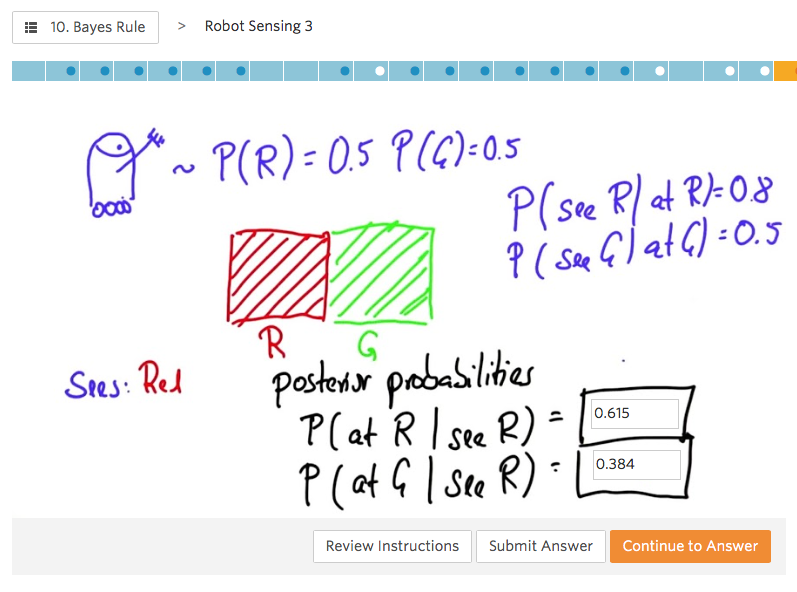 10. Bayes Rule > Robot Sensing 3
~ P(R) = 0.5 P(G)=0.5
P(see R| at R)=0.8
P(see G| at G) = 0.5
R G
Sees: Red
Posterior probabilities
P(at R | see R) = 0.615
P(at G | see R) = 0.384
Review Instructions Submit Answer Continue to Answer